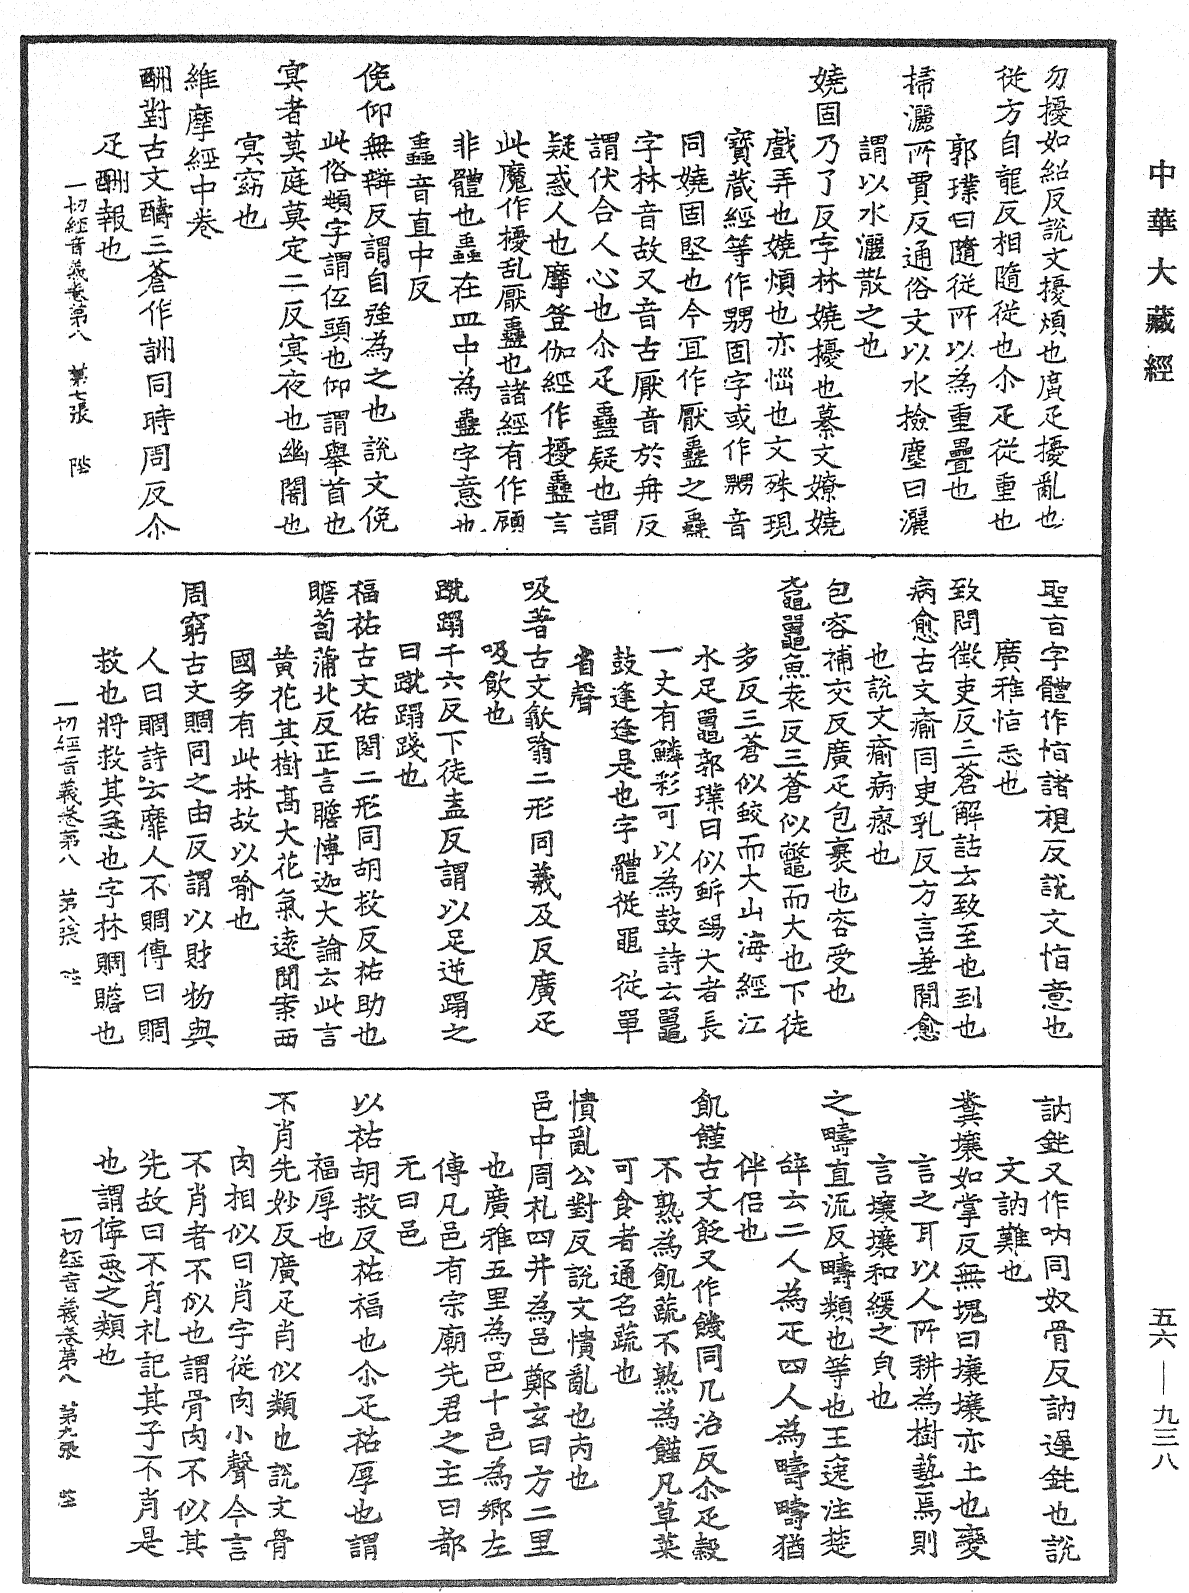 中華大藏經
勿擾如紹反說文擾煩也廣疋擾亂也
従方自龍反相隨従也尒疋従重也
郭璞曰隨従所以為重疊也
掃灑所賈反通俗文以水撿塵曰灑
謂以水灑散之也
嬈固乃了反字林嬈擾也纂文嫽嬈
戲弄也嬈煩也亦惱也文殊現
寶蔵經等作嬲固字或作嬲音
同嬈固堅也今冝作厭蠱之蠱
字林音故又音古厭音於冉反
謂伏合人心也尒疋蠱疑也謂
疑惑人也摩登伽經作擾蠱言
此魔作擾乱厭蠱也諸經有作頋
非體也蟲在皿中為蠱字意也
蟲音直中反
俛仰無辯反謂自強為之也說文俛
此俗頫字謂伍頭也仰謂舉首也
㝠者莫庭莫定二反㝠夜也幽闇也
㝠窈也
維摩經中卷
酬對古文醻三蒼作詶同時周反尒
疋酬報也
一切經音義卷第八　第七張　階
聖百字體作怕諸視反說文恉意也
廣雅恉志也
致問徵吏反三蒼解詁云致至也到也
病愈古文瘉同吏乳反方言差閒愈
也說文瘉病瘳也
包容補交反廣疋包褁也容受也
黿鼉魚袁反三蒼似鼈而大也下徒
多反三蒼似鮫而大山海經江
水足鼉郭璞曰似蜥蜴大者長
一丈有鱗彩可以為鼓詩云鼉
鼓逢逢是也字體従黽従單
省聲
吸著古文歙翕二形同羲及反廣疋
吸飲也
蹴蹋千六反下徒盍反謂以足逆蹋之
曰蹴蹋踐也
福祐古文佑閣二形同胡救反祐助也
瞻蔔蒲北反正言瞻愽迦大論云此言
黃花其樹髙大花氣逺聞案西
國多有此林故以喻也
周窮古文賙同之由反謂以財物與
人曰賙詩云靡人不賙傳曰賙
救也將救其急也字林賙贍也
一切經音義卷第八　第八張　階
訥鈍又作吶同奴骨反訥遲鈍也說
文訥難也
糞壤如掌反無塊曰壤壤亦土也變
言之耳以人所耕為樹藝焉則
言壤壤和緩之皃也
之疇直流反疇類也等也王逸注楚
辝云二人為疋四人為疇疇猶
伴侣也
飢饉古文飥又作饑同几治反尒疋穀
不熟為飢蔬不熟為饉凡草菜
可食者通名蔬也
憒亂公對反說文憒亂也㐫也
邑中周礼四井為邑鄭玄曰方二里
也廣雅五里為邑十邑為郷左
傳凡邑有宗廟先君之主曰都
无曰邑
以祐胡救反祐福也尒疋祐厚也謂
福厚也
不肖先妙反廣疋肖似類也說文骨
肉相似曰肖字従肉小聲今言
不肖者不似也謂骨肉不似其
先故曰不肖礼記其子不肖是
也謂儜惡之類也
一切經音義卷第八　第九張　階
五六—九三八